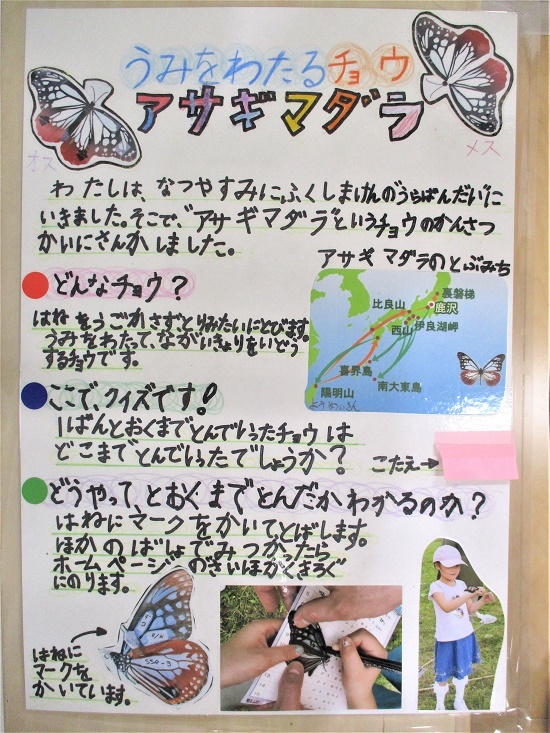 うみをわたるチョウ
アサギマダラ
オス
メス
わたしは、なつやすみにふくしまけんのうらばんだいに
いきました。そこで、"アサギマダラ"というチョウのかんさつ
かいにさんかしました。
アサギマダラのとぶみち
裏磐梯
鹿沢
比良山
西山
伊良湖岬
喜界島
南大東島
陽明山
ようめいさん
どんなチョウ?
はねをうごかさずとりみたいにとびます。
うみをわたって、ながいきょりをいどう
するチョウです。
ここでクイズです!
1ばんとおくまでとんでいったチョウは
どこまでとんでいったでしょうか?
こたえ→
どうやってとおくまでとんだかわかるのか?
はねにマークをかいてとばします。
ほかのばしょでみつかったら
ホームページのさいほかくきろく
にのります。
はねに
マークを
かいています。